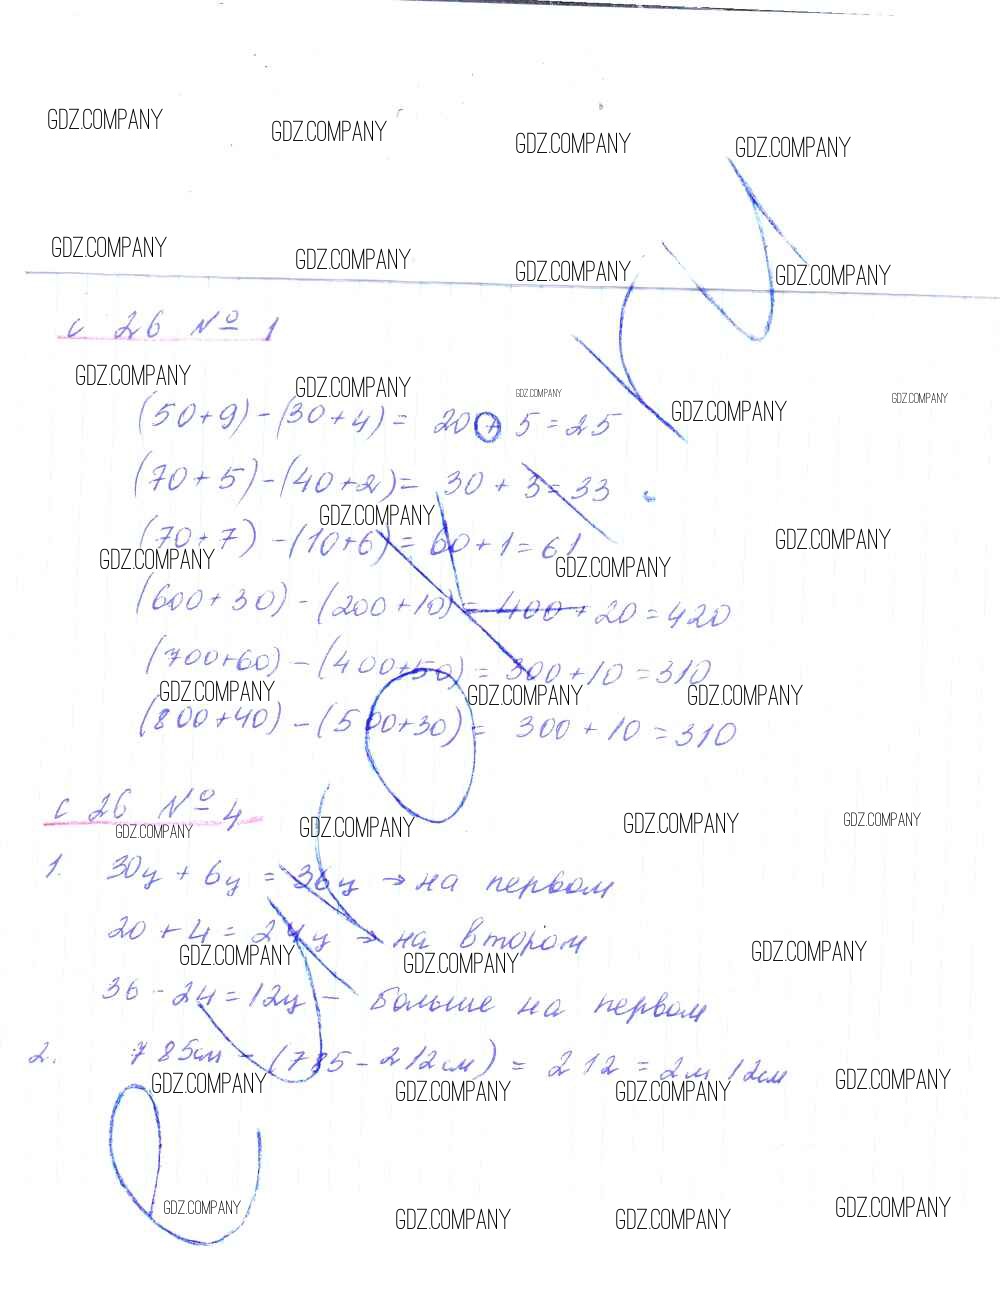 GDZ.COMPANY GDZ.COMPANY GDZ.COMPANY GDZ.COMPANY
GDZ.COMPANY GDZ.COMPANY GDZ.COMPANY GDZ.COMPANY
с 26 № 1
GDZ.COMPANY GDZ.COMPANY GDZ.COMPANY GDZ.COMPANY GDZ.COMPANY
(50+9)-(30+4)= 20+5=25
(70+5)-(40+2)= 30+3=33
GDZ.COMPANY GDZ.COMPANY
(70+7)-(10+6)=60+1=61
GDZ.COMPANY GDZ.COMPANY
(600+30)-(200+10)=400+20=420
(700+60)-(400+50)=300+10=310
GDZ.COMPANY GDZ.COMPANY GDZ.COMPANY
(800+40)-(500+30)= 300+10=310
с 26 № 4
GDZ.COMPANY GDZ.COMPANY GDZ.COMPANY GDZ.COMPANY
1. 30ц + 6ц = 36ц → на первом
20+4=24ц → на втором
GDZ.COMPANY GDZ.COMPANY GDZ.COMPANY
36-24=12ц - больше на первом
2. 785см-(785-212см) = 212 = 2м 12см
GDZ.COMPANY GDZ.COMPANY GDZ.COMPANY GDZ.COMPANY
GDZ.COMPANY GDZ.COMPANY GDZ.COMPANY GDZ.COMPANY